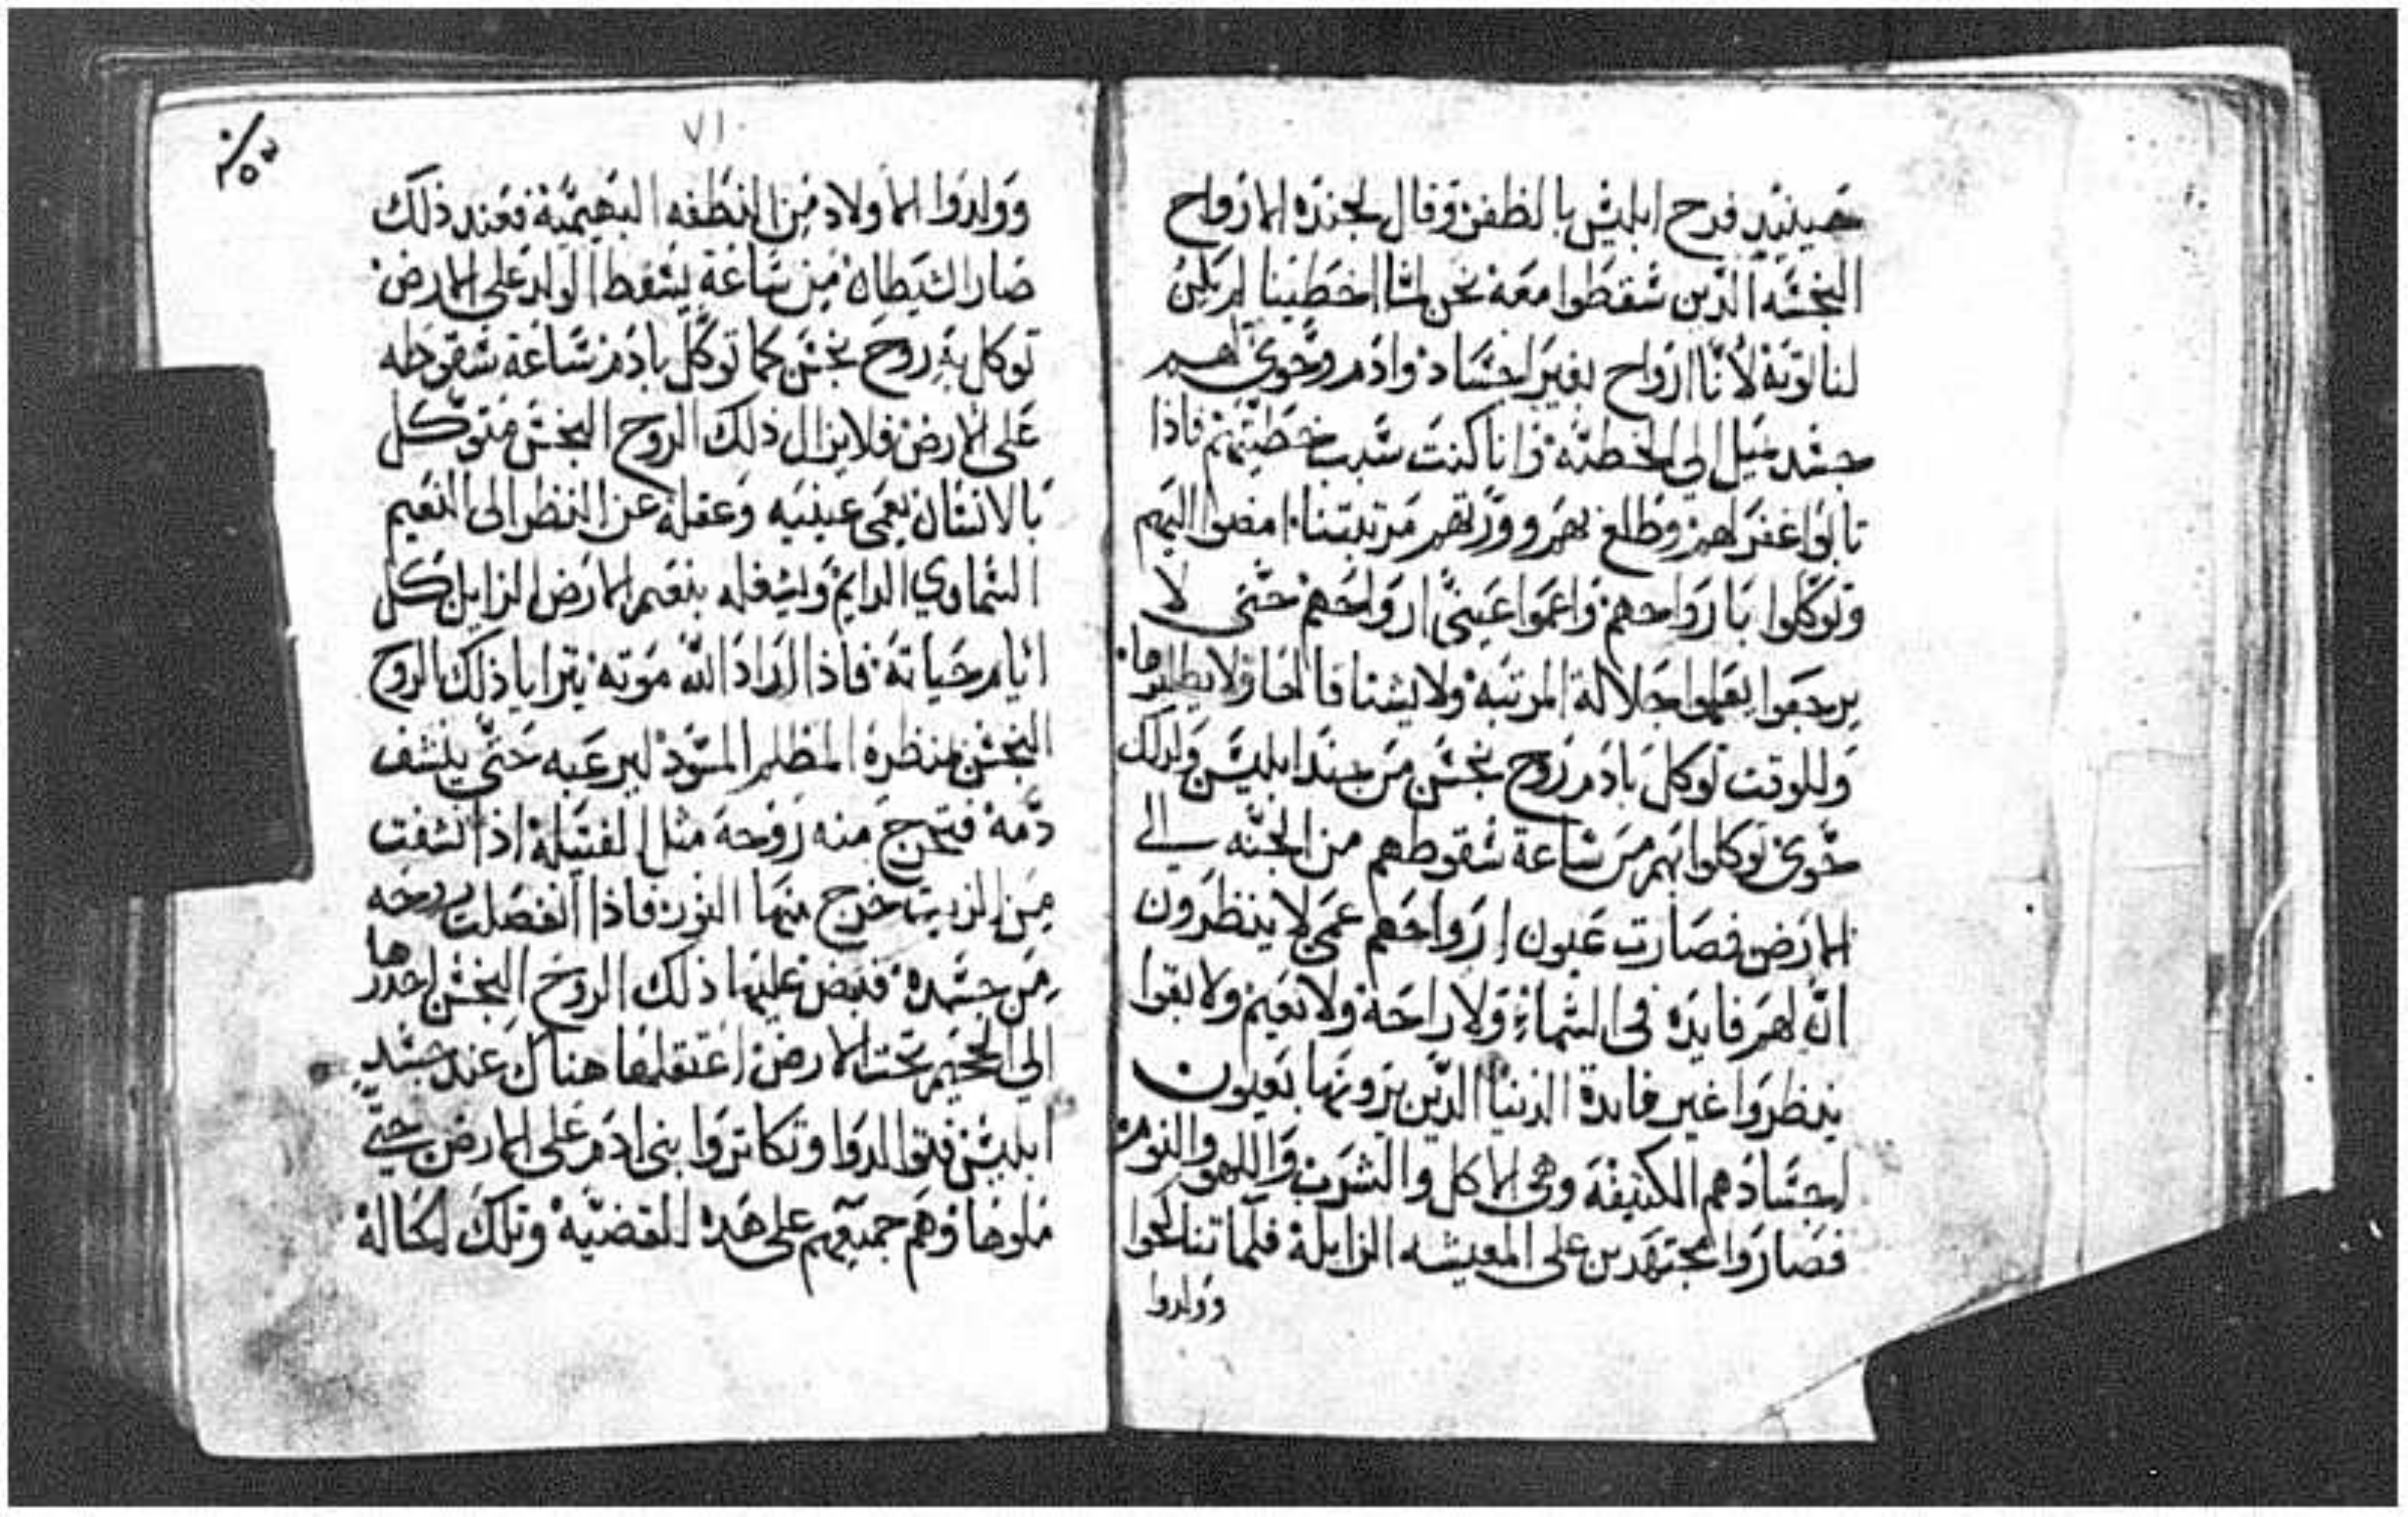 حينيد فرح ابليس بالظفر وقال لجنده الارواح
النجسه الذين سقطوا معه نحن لما اخطينا لم يكن
لنا توبة لأنّا ارواح بغير اجساد وادم وحوي لهم
جسد يميل الى الخطية وانا كنت سبب خطيتهم فاذا
تابوا غفر لهم وطلع بهم وورثهم مرتبتنا امضوا اليهم
وتوكلوا بارواحهم واعموا عيني ارواحهم حتى لا
يرجعوا يعلموا جلالة المرتبة ولا يشتاقا لها ولا يطلبوها
وللوقت توكل بادم روح نجس من جند ابليس وكذلك
حوي توكلوا بهم من ساعة سقوطهم من الجنه الى
الارض فصارت عيون ارواحهم عمي لا ينظرون
ان لهم فايده في السماء ولا راحة ولا نعيم ولا بقوا
ينظروا غير فايدة الدنيا الذين يرونها بعيون
اجسادهم الكثيفة وهي الاكل والشرب واللهو والنوم
فصاروا مجتهدين على المعيشه الزايلة فلما تناكحوا
وولدوا
٧١
وولدوا الاولاد من النطفه البهيمية فعند ذلك
صار الشيطان من ساعة يسقط الولد على الارض
توكل به روح نجس كما توكل بادم من ساعة سقوطه
على الارض فلا يزال ذلك الروح النجس متوكل
بالانسان يعمي عينيه وعقله عن النظر الى النعيم
السماوي الدايم ويشغله بنعيم الارض الزايل كل
ايام حياته فاذا اراد الله موته يترايا ذلك الروح
النجس بمنظره المظلم المسود ليرعبه حتى ينشف
دمه فتخرج منه روحه مثل الفتيلة اذا نشفت
من الزيت خرج منها النور فاذا انفصلت روحه
من جسده قبض عليها ذلك الروح النجس احدرها
الى الجحيم تحت الارض اعتقلها هناك عند جسد
ابليس فتوالدوا وتكاتروا بني ادم على الارض حتى
ملوها وهم جميعهم على هذه القضية وتلك الحالة